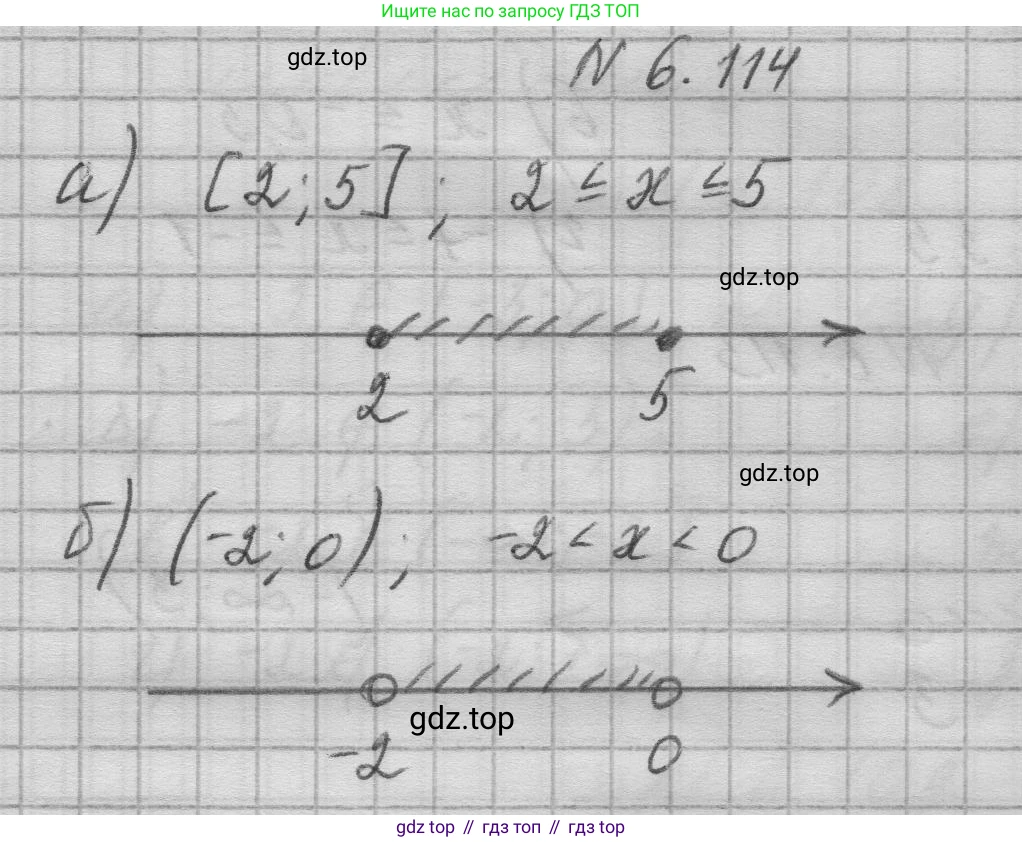 Ищите нас по запросу ГДЗ ТОП
gdz.top
N 6.114
а) [2; 5]; 2 ≤ x ≤ 5
gdz.top
2 5
gdz.top
б) (-2; 0); -2 < x < 0
gdz.top
-2 0
gdz top // гдз топ // gdz top